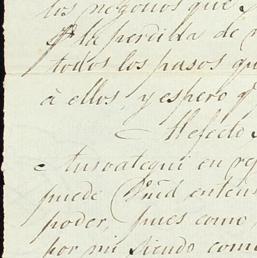 los negocios que
la perdida de
todos los pasos qu
à ellos, y espero q
Al efecto
en
puede Vmd enten
poder, pues como
por mi siendo como